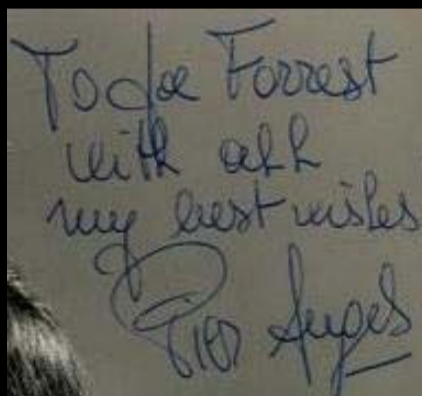 To Joe Forrest
with all
my best wishes
Pier Angeli